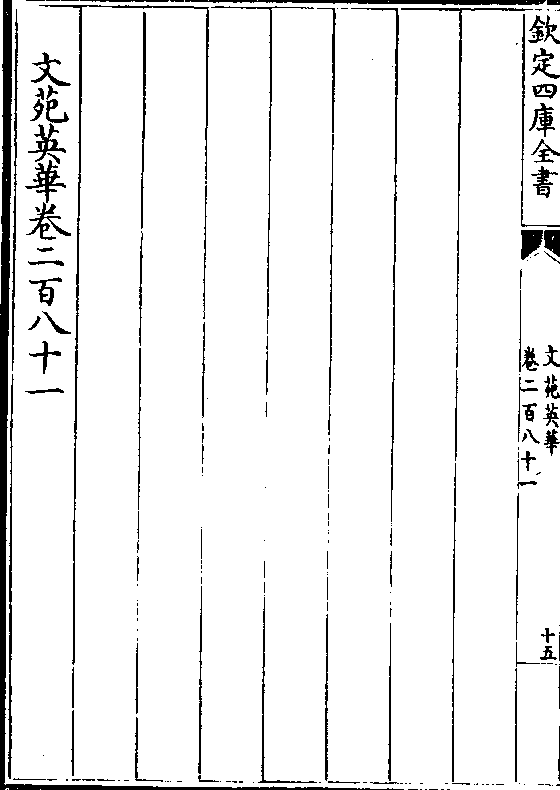 欽定四庫全書
文苑英華
卷二百八十一
十五
文苑英華卷二百八十一